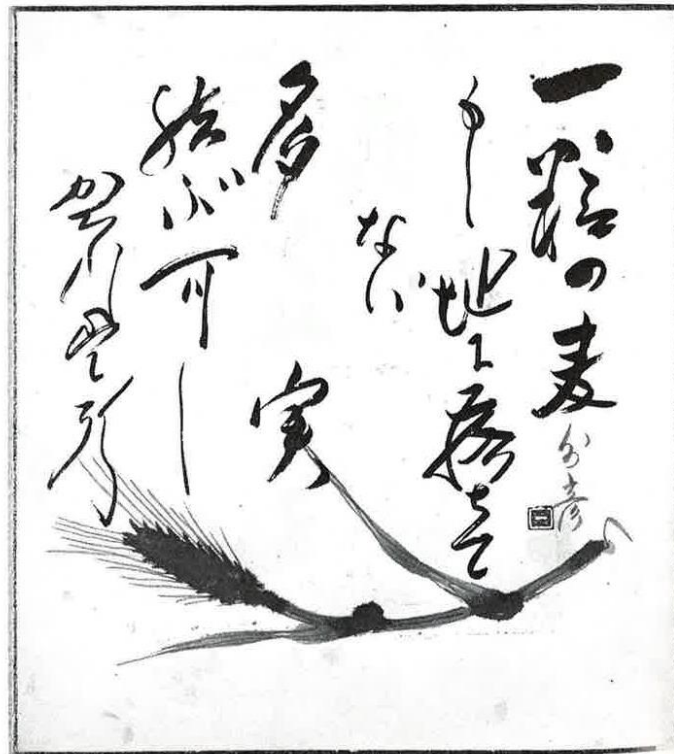 一粒の麦
もし地に落ちて
なバ
多 実
結ぶ可し
賀川豊彦